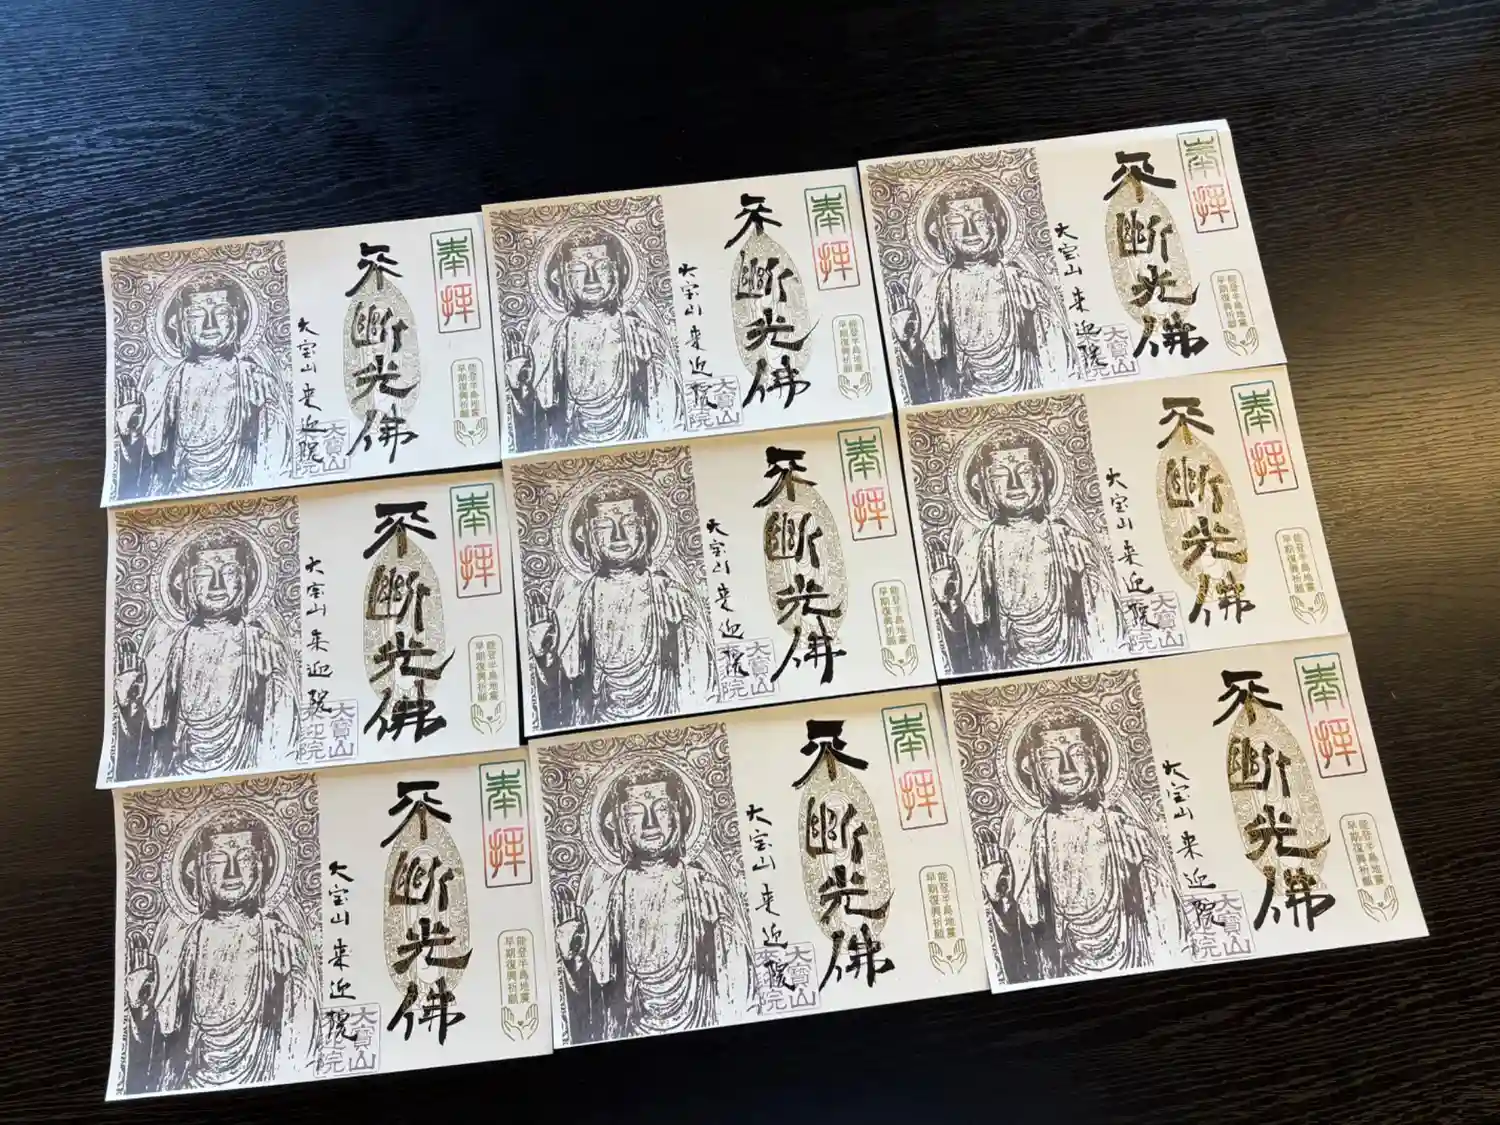 奉拝
能登半島地震
早期復興祈願
不断光佛
大宝山 来迎院
大寶山
来迎院
奉拝
能登半島地震
早期復興祈願
不断光佛
大宝山 来迎院
大寶山
来迎院
奉拝
能登半島地震
早期復興祈願
不断光佛
大宝山 来迎院
大寶山
来迎院
奉拝
能登半島地震
早期復興祈願
不断光佛
大宝山 来迎院
大寶山
来迎院
奉拝
能登半島地震
早期復興祈願
不断光佛
大宝山 来迎院
大寶山
来迎院
奉拝
能登半島地震
早期復興祈願
不断光佛
大宝山 来迎院
大寶山
来迎院
奉拝
能登半島地震
早期復興祈願
不断光佛
大宝山 来迎院
大寶山
来迎院
奉拝
能登半島地震
早期復興祈願
不断光佛
大宝山 来迎院
大寶山
来迎院
奉拝
能登半島地震
早期復興祈願
不断光佛
大宝山 来迎院
大寶山
来迎院